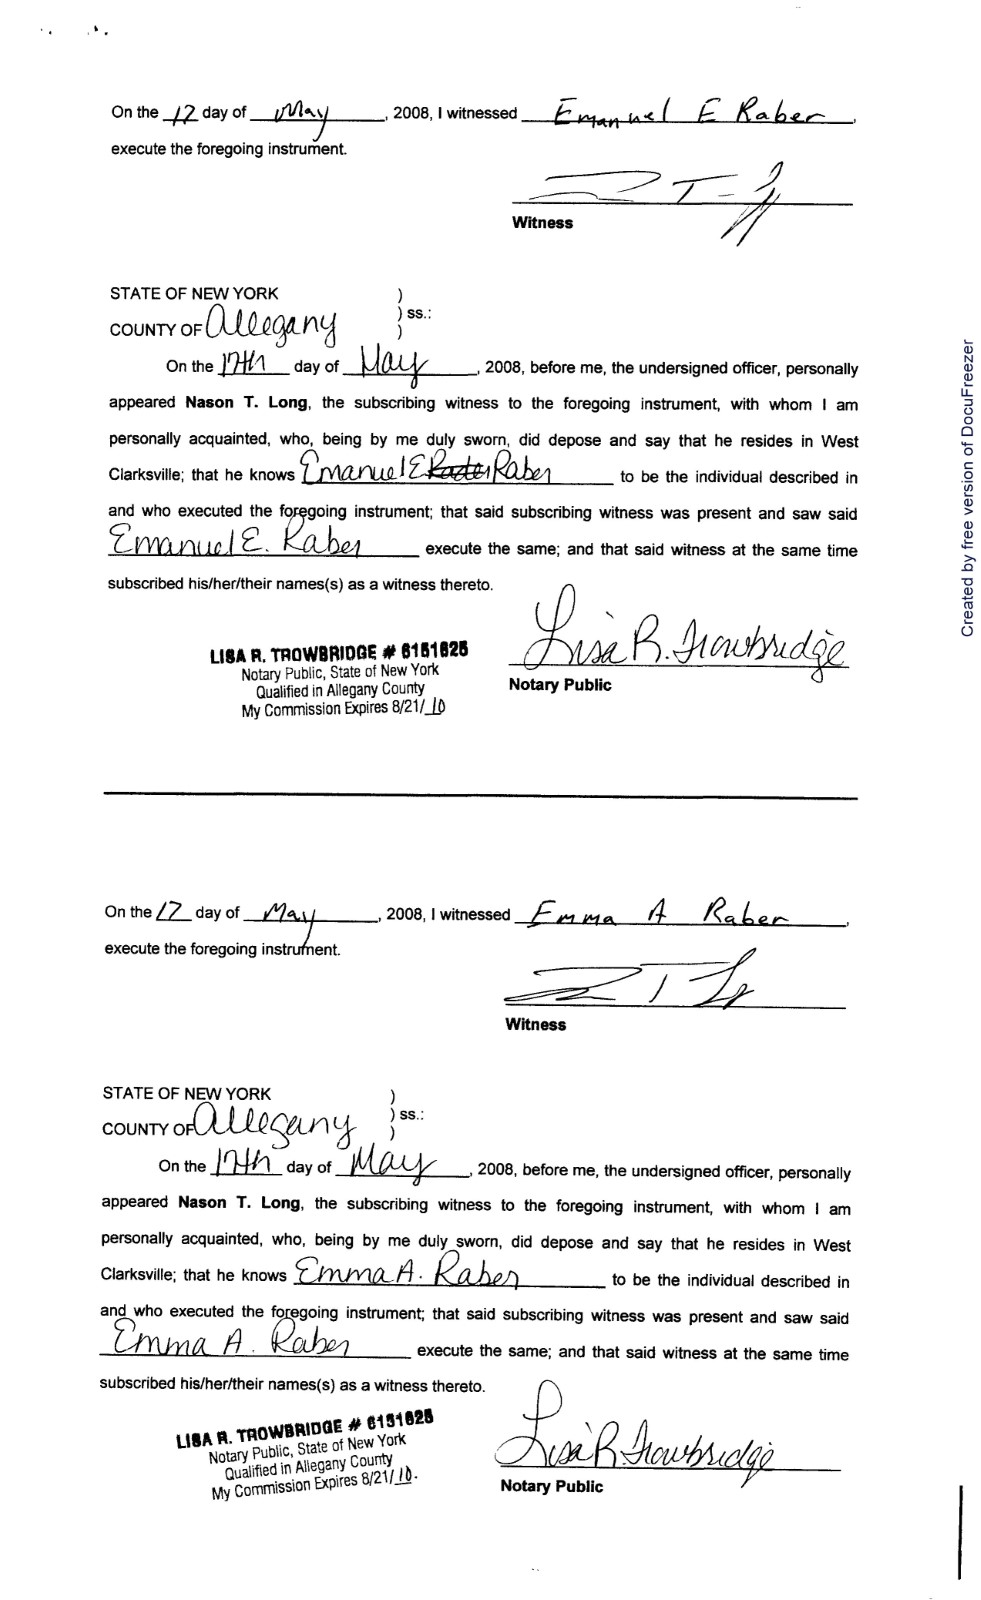 On the 17 day of May, 2008, I witnessed Emanuel E Raber,
execute the foregoing instrument.
Witness
STATE OF NEW YORK )
) ss.:
COUNTY OF Allegany )
On the 17th day of May, 2008, before me, the undersigned officer, personally
appeared Nason T. Long, the subscribing witness to the foregoing instrument, with whom I am
personally acquainted, who, being by me duly sworn, did depose and say that he resides in West
Clarksville; that he knows Emanuel E Raber to be the individual described in
and who executed the foregoing instrument; that said subscribing witness was present and saw said
Emanuel E. Raber execute the same; and that said witness at the same time
subscribed his/her/their names(s) as a witness thereto.
Lisa R. Trowbridge
LISA R. TROWBRIDGE # 6151625
Notary Public, State of New York
Qualified in Allegany County
My Commission Expires 8/21/10
Notary Public
On the 17 day of May, 2008, I witnessed Emma A Raber,
execute the foregoing instrument.
Witness
STATE OF NEW YORK )
) ss.:
COUNTY OF Allegany )
On the 17th day of May, 2008, before me, the undersigned officer, personally
appeared Nason T. Long, the subscribing witness to the foregoing instrument, with whom I am
personally acquainted, who, being by me duly sworn, did depose and say that he resides in West
Clarksville; that he knows Emma A. Raber to be the individual described in
and who executed the foregoing instrument; that said subscribing witness was present and saw said
Emma A. Raber execute the same; and that said witness at the same time
subscribed his/her/their names(s) as a witness thereto.
Lisa R. Trowbridge
LISA R. TROWBRIDGE # 6151625
Notary Public, State of New York
Qualified in Allegany County
My Commission Expires 8/21/10.
Notary Public
Created by free version of DocuFreezer